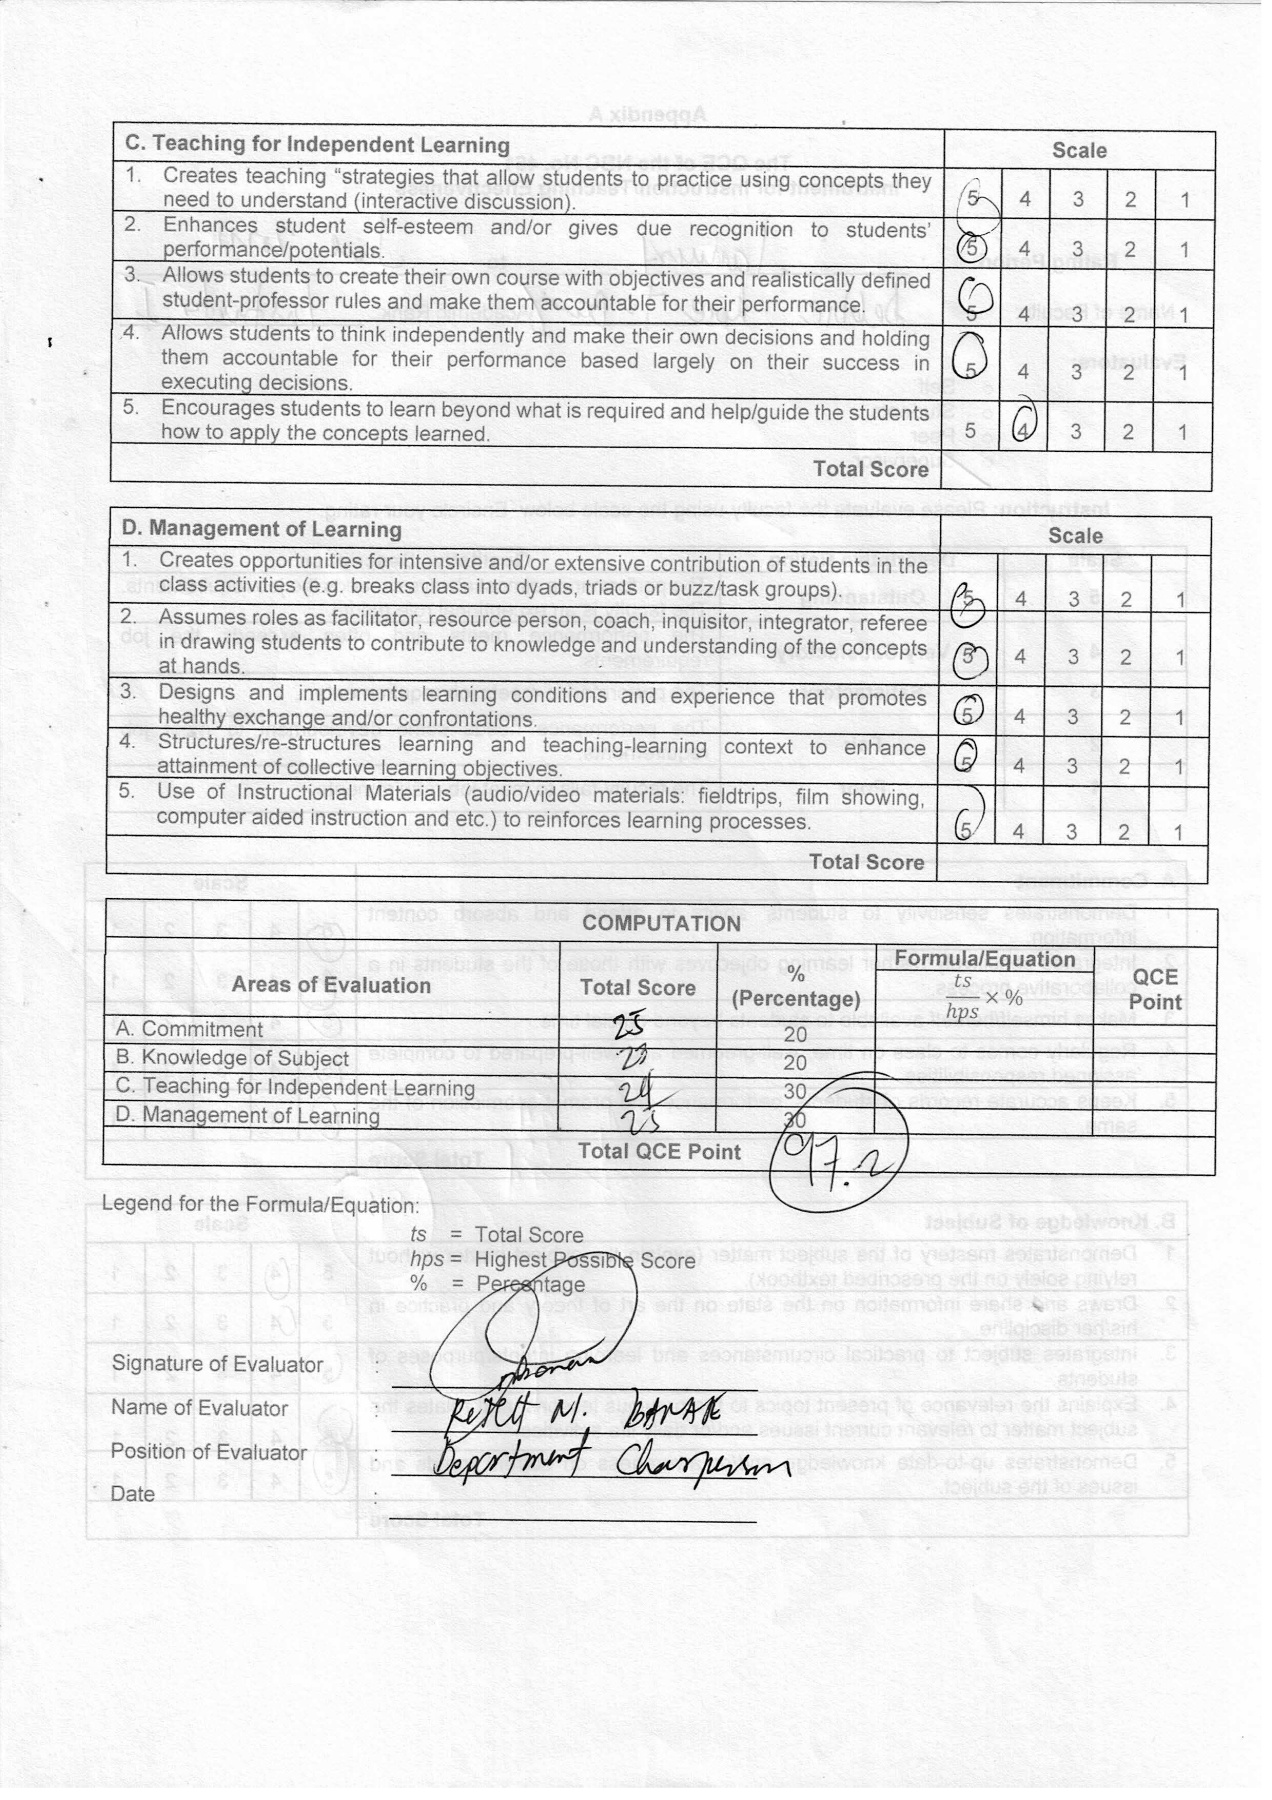 C. Teaching for Independent Learning Scale
1. Creates teaching “strategies that allow students to practice using concepts they
need to understand (interactive discussion). 5 4 3 2 1
2. Enhances student self-esteem and/or gives due recognition to students’
performance/potentials. 5 4 3 2 1
3. Allows students to create their own course with objectives and realistically defined
student-professor rules and make them accountable for their performance. 5 4 3 2 1
4. Allows students to think independently and make their own decisions and holding
them accountable for their performance based largely on their success in 5 4 3 2 1
executing decisions.
5. Encourages students to learn beyond what is required and help/guide the students
how to apply the concepts learned. 5 4 3 2 1
Total Score
D. Management of Learning Scale
1. Creates opportunities for intensive and/or extensive contribution of students in the
class activities (e.g. breaks class into dyads, triads or buzz/task groups). 5 4 3 2 1
2. Assumes roles as facilitator, resource person, coach, inquisitor, integrator, referee
in drawing students to contribute to knowledge and understanding of the concepts 5 4 3 2 1
at hands.
3. Designs and implements learning conditions and experience that promotes
healthy exchange and/or confrontations. 5 4 3 2 1
4. Structures/re-structures learning and teaching-learning context to enhance
attainment of collective learning objectives. 5 4 3 2 1
5. Use of Instructional Materials (audio/video materials: fieldtrips, film showing,
computer aided instruction and etc.) to reinforces learning processes. 5 4 3 2 1
Total Score
COMPUTATION
Areas of Evaluation Total Score % (Percentage) Formula/Equation ts/hps × % QCE Point
A. Commitment 25 20
B. Knowledge of Subject 20
C. Teaching for Independent Learning 24 30
D. Management of Learning 25 30
Total QCE Point 97.2
Legend for the Formula/Equation:
ts = Total Score
hps = Highest Possible Score
% = Percentage
Signature of Evaluator :
Name of Evaluator : M.
Position of Evaluator : Department Chairperson
Date :